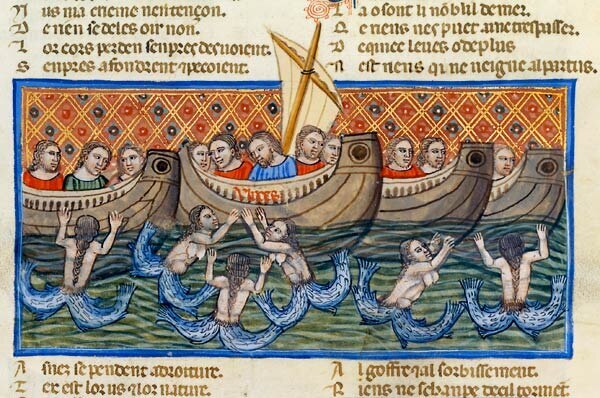 N us ma eneme nentençon.
D e nen se deles oir non.
L or cors perden senpres desuoient.
S enpres afondrent ⁊ pecoient.
a o sont li nōblil de mer.
Q e nens ne s puet ane trespasser.
D equince leues o de plus
N est nens qi ne neigne al partus.
Vlixes
A snez se pendent adroiture.
T er est lor us ⁊ lor nature.
A l goffre ⁊ al sorbissement.
R iens ne sebanpe decil torment